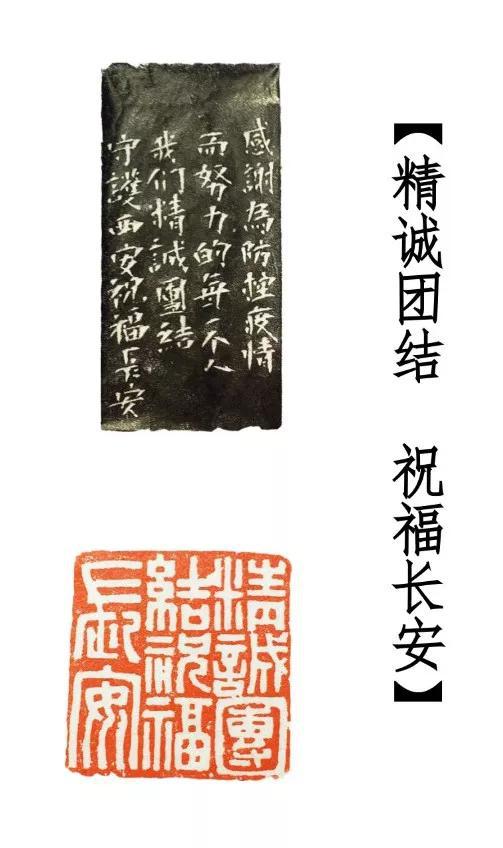 【精诚团结 祝福长安】
感謝為防控疫情
而努力的每一个人
我们精誠團結
守護西安祝福長安
精誠團
結祝福
長安